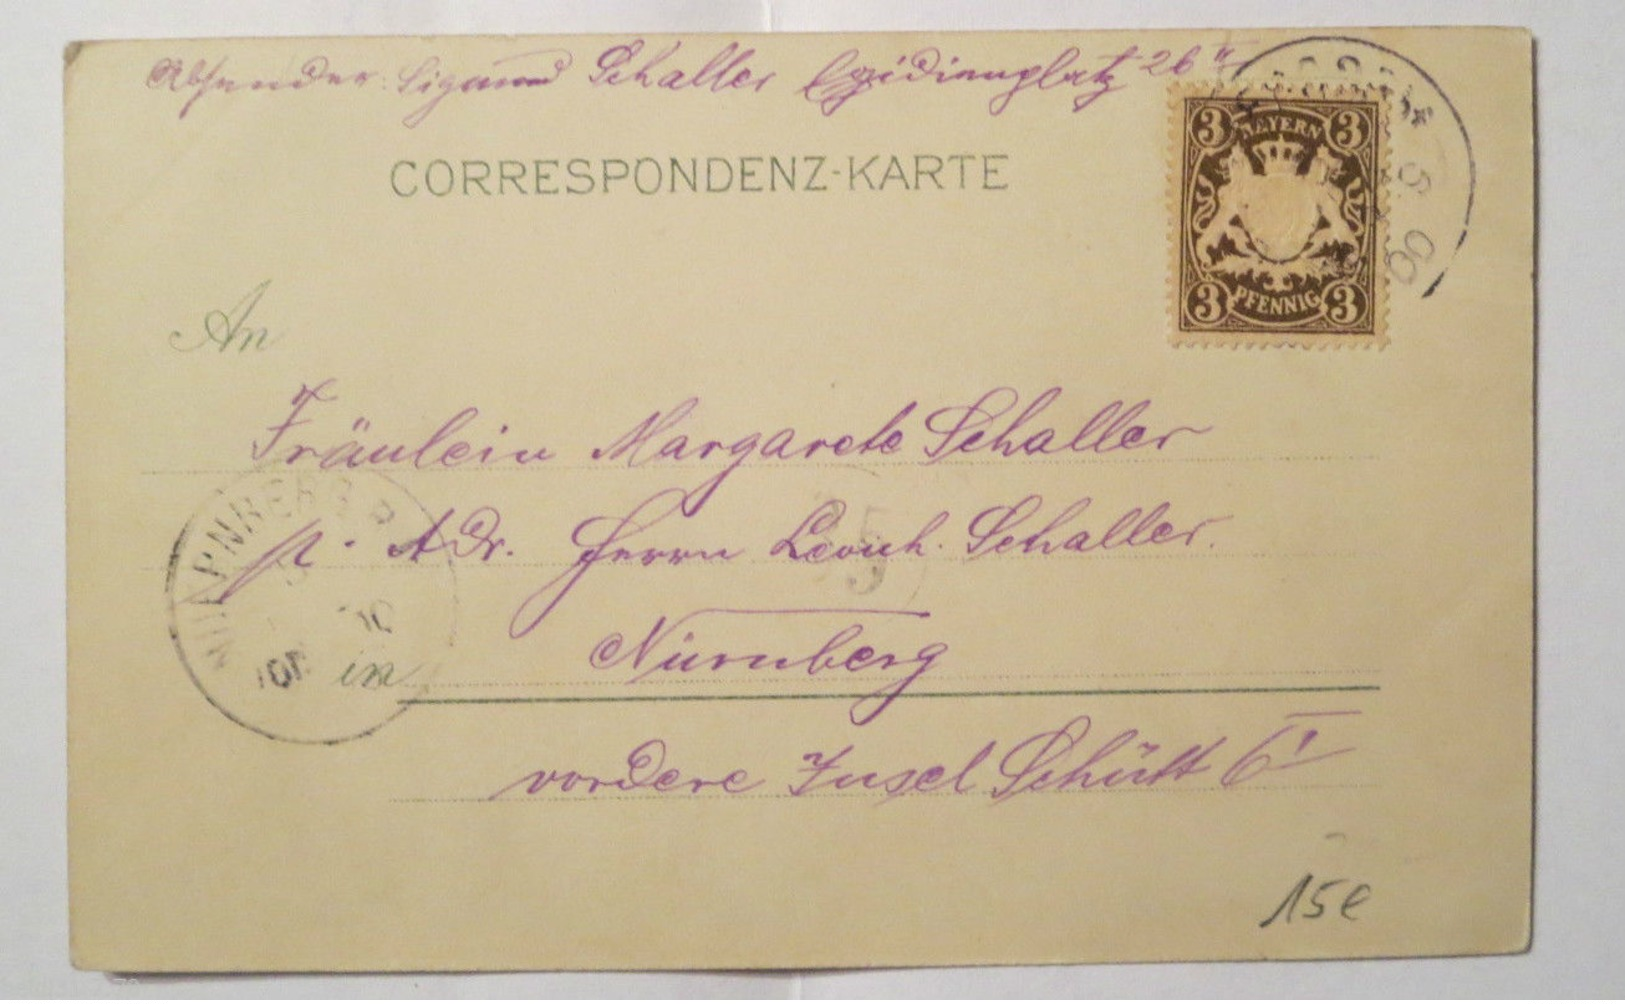 Absender: Sigmund Schaller Egidienplatz 26 II
CORRESPONDENZ-KARTE
3 BAYERN 3
3 PFENNIG 3
5 00
An
Fräulein Margarete Schaller
p. Adr. Herrn Leonh. Schaller.
NUERNBERG
in Nürnberg
vordere Insel Schütt 6 I
15€